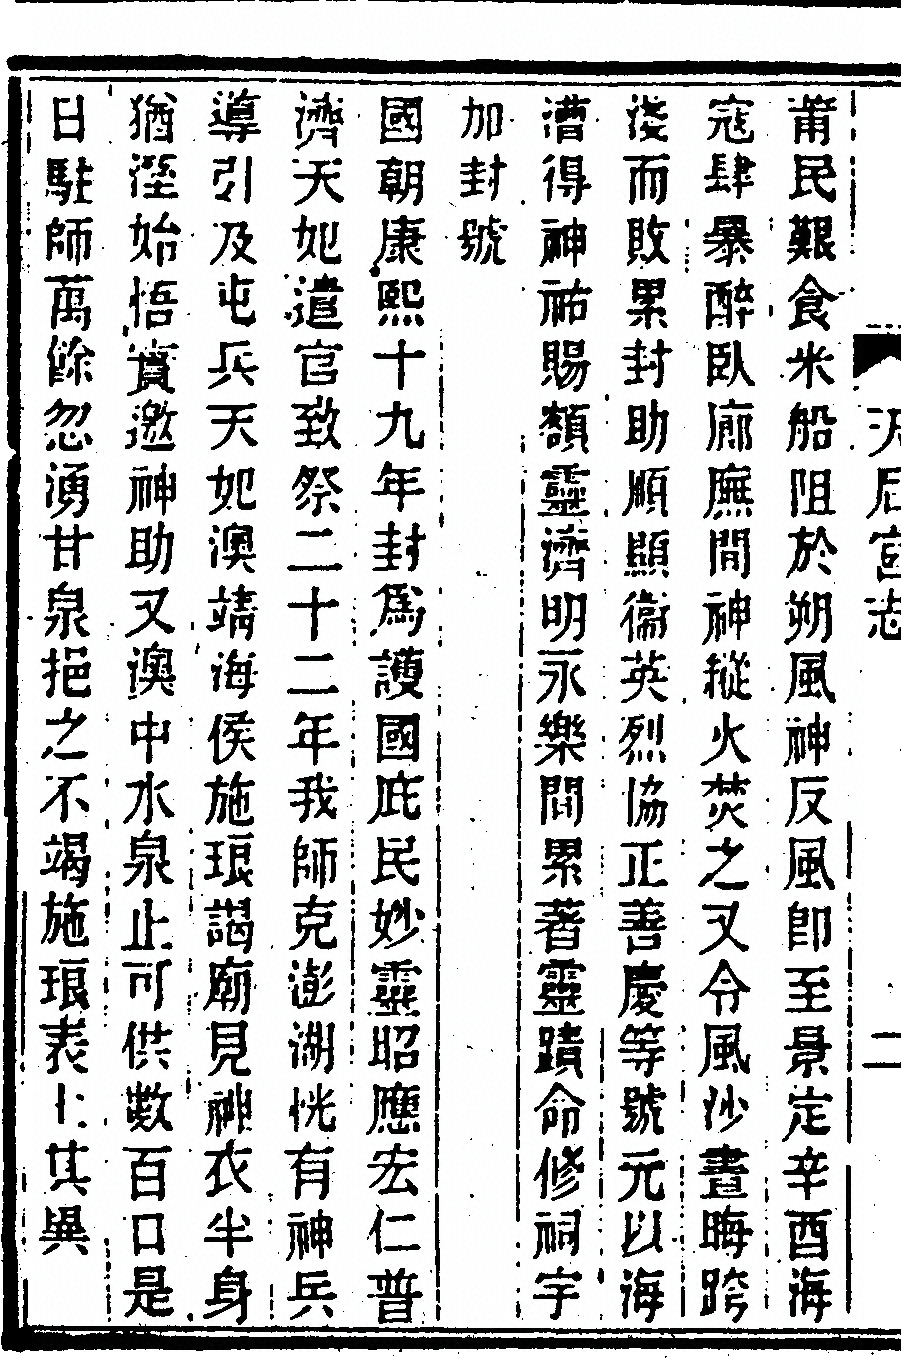 天后宮志
二
莆民艱食米船阻於朔風神反風卽至景定辛酉海
寇肆暴醉臥廊廡間神縱火焚之又令風沙晝晦跨
淺而敗累封助順顯衞英烈協正善慶等號元以海
漕得神祐賜額靈濟明永樂間累著靈蹟命修祠宇
加封號
國朝康熙十九年封爲護國庇民妙靈昭應宏仁普
濟天妃遣官致祭二十二年我師克澎湖恍有神兵
導引及屯兵天妃澳靖海侯施琅謁廟見神衣半身
猶溼始悟實邀神助又澳中水泉止可供數百口是
日駐師萬餘忽湧甘泉挹之不竭施琅表上其異